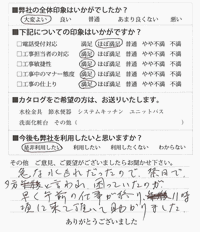 ■弊社の全体印象はいかがでしたか？
大変よい 良い 普通 あまり良くない 悪い
■下記についての印象はいかがですか？
□電話受付対応 満足 ほぼ満足 普通 やや不満 不満
□工事担当者の対応 満足 ほぼ満足 普通 やや不満 不満
□工事敏捷性 満足 ほぼ満足 普通 やや不満 不満
□工事中のマナー態度 満足 ほぼ満足 普通 やや不満 不満
□工事の仕上り 満足 ほぼ満足 普通 やや不満 不満
■カタログをご希望の方は、お送りいたします。
水栓金具 給水便器 システムキッチン ユニットバス
洗面化粧台 その他（ ）
■今後も弊社を利用したいと思いますか？
是非利用したい 利用したい 利用したくない わからない
その他 ご意見、ご要望がございましたらお聞かせ下さい。
急な水もれだったので、祭日で
と言われ、困っていたのが、
早く午前の仕事が終り、11時
頃に来て頂いて助かりました。
ありがとうございました